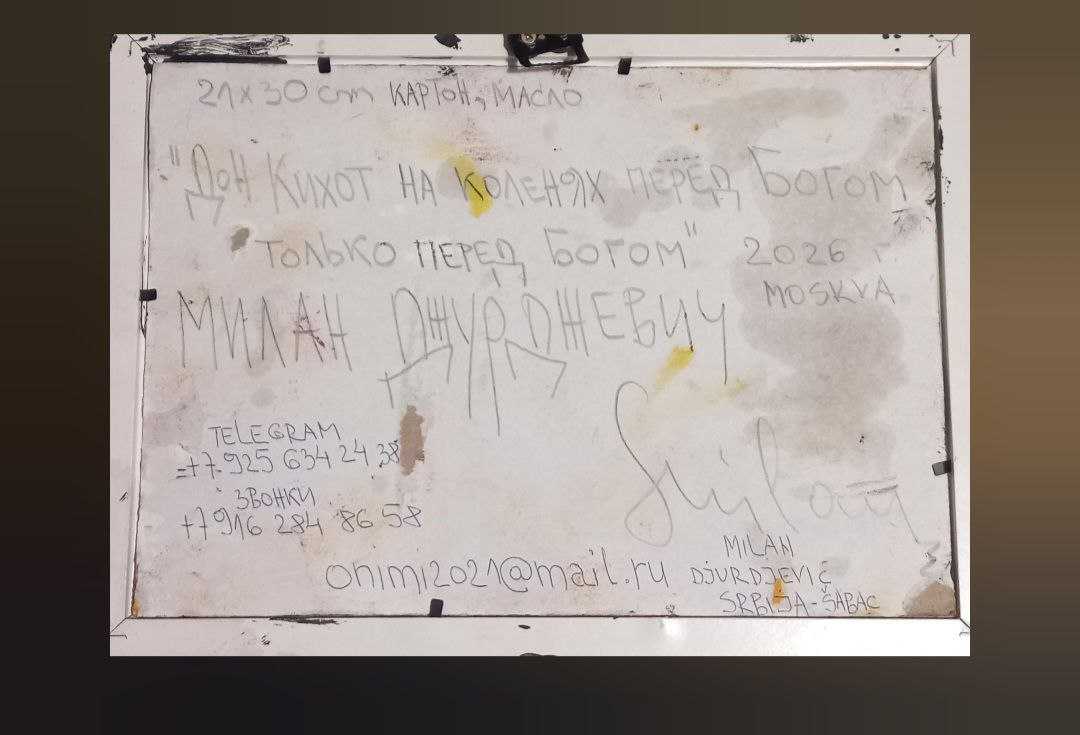 21x30 cm КАРТОН, МАСЛО
"ДОН КИХОТ НА КОЛЕНЯХ ПЕРЕД БОГОМ
ТОЛЬКО ПЕРЕД БОГОМ" 2026 г
MOSKVA
МИЛАН ДЖУРДЖЕВИЧ
TELEGRAM
=+7.925 634 24 38
ЗВОНКИ
+7916 284 86 58
onimi2021@mail.ru
MILAN
DJURDJEVIĆ
SRBIJA-ŠABAC